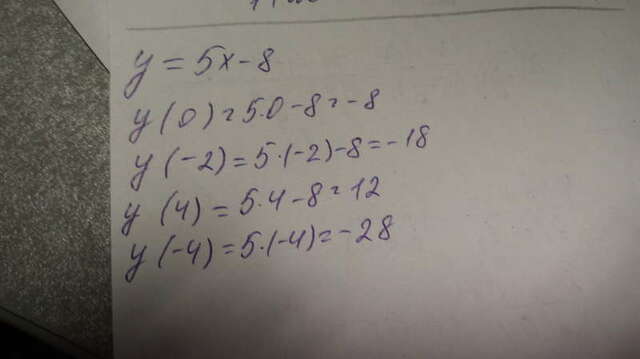 y = 5x - 8
y(0) = 5·0 - 8 = -8
y(-2) = 5·(-2) - 8 = -18
y(4) = 5·4 - 8 = 12
y(-4) = 5·(-4) = -28